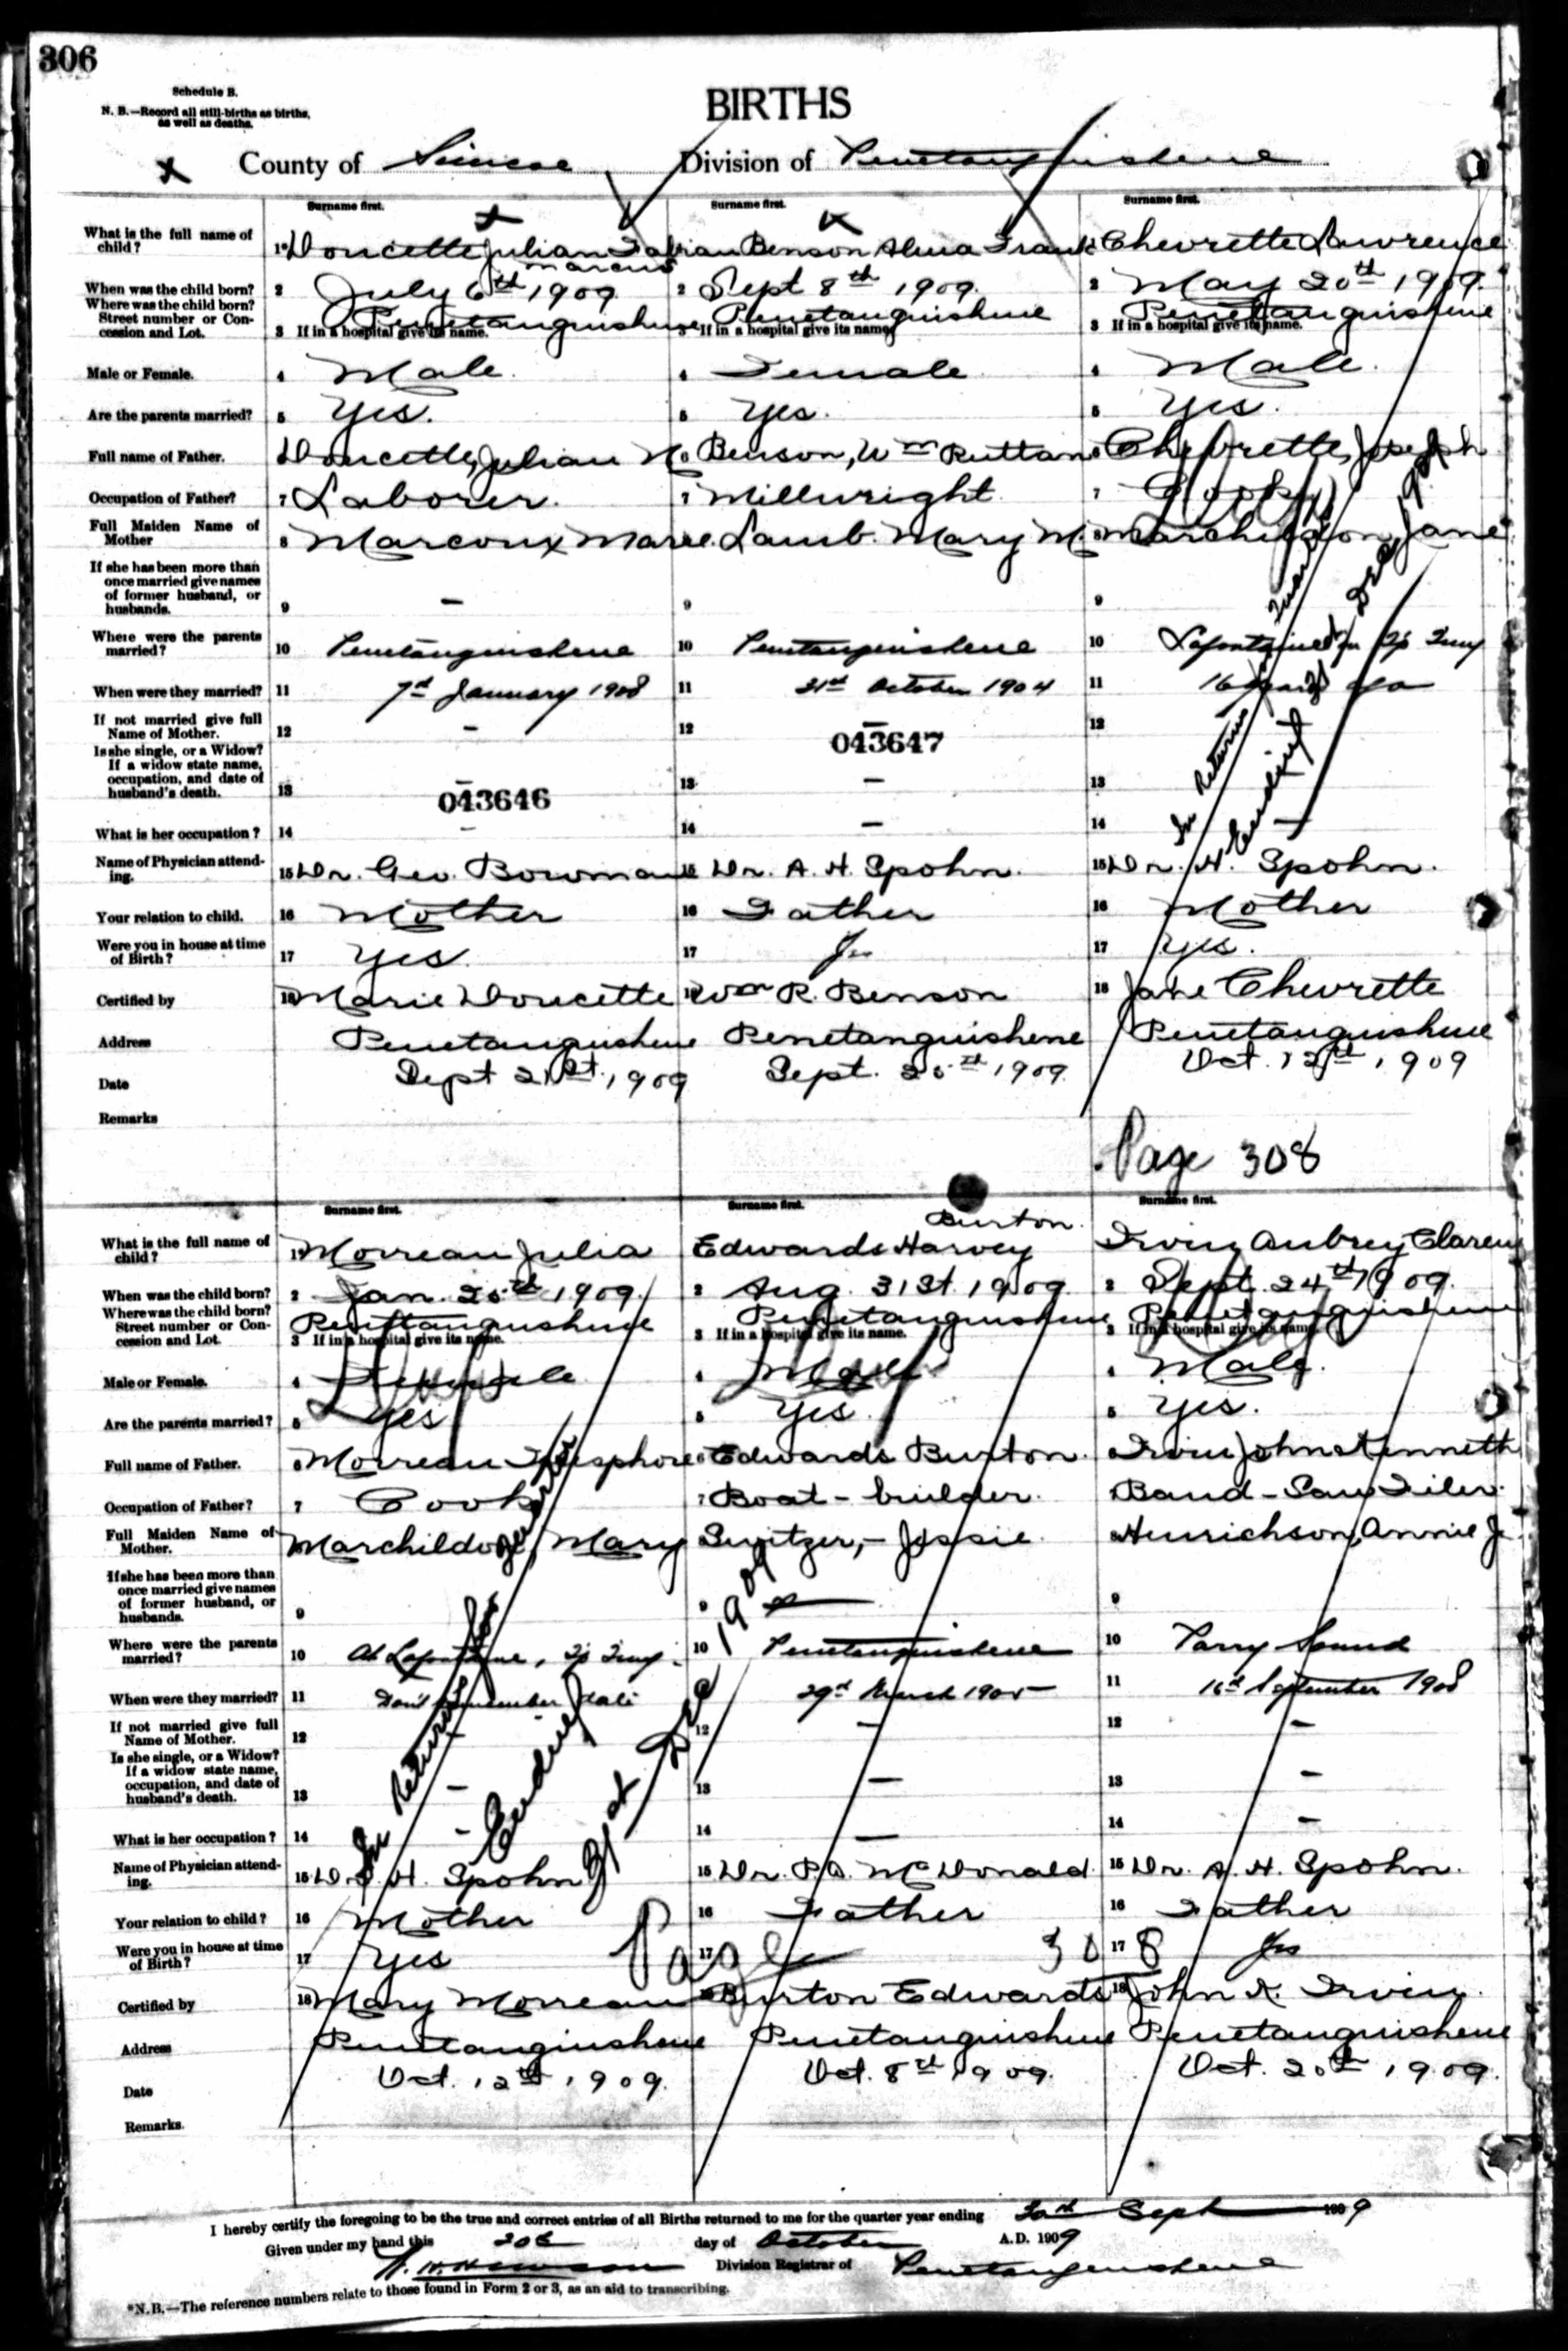 306
Schedule B.
N. B.—Record all still-births as births,
as well as deaths.
BIRTHS
X County of Simcoe Division of Penetanguishene
Surname first. Surname first. Surname first.
What is the full name of child? 1* Doucette Julian Fabian Marcus Benson Alma Frank Chevrette Lawrence
When was the child born? 2 July 6th 1909 2 Sept 8th 1909. 2 May 20th 1909.
Where was the child born? Street number or Concession and Lot. 3 If in a hospital give its name. Penetanguishene 3 If in a hospital give its name. Penetanguishene 3 If in a hospital give its name. Penetanguishene
Male or Female. 4 Male. 4 Female 4 Male.
Are the parents married? 5 Yes. 5 Yes. 5 Yes.
Full name of Father. Doucette, Julian N. 6 Benson, Wm Ruttan 6 Chevrette, Joseph
Occupation of Father? 7 Laborer. 7 Millwright 7 Cook
Full Maiden Name of Mother 8 Marcoux Marie Lamb. Mary M. 8 Marchildon, Jane
If she has been more than once married give names of former husband, or husbands. 9 — 9 9
Where were the parents married? 10 Penetanguishene 10 Penetanguishene 10 Lafontaine Tp Tiny
When were they married? 11 7th January 1908 11 21st October 1904 11 16 years ago
If not married give full Name of Mother. 12 — 12 — 12
043647
Is she single, or a Widow? If a widow state name, occupation, and date of husband's death. 13 — 13 — 13
043646
What is her occupation? 14 — 14 — 14 —
Name of Physician attending. 15 Dr. Geo. Bowman 15 Dr. A. H. Spohn. 15 Dr. H. Spohn.
Your relation to child. 16 Mother 16 Father 16 Mother
Were you in house at time of Birth? 17 Yes 17 Yes 17 Yes.
Certified by 18 Marie Doucette 18 Wm R. Benson 18 Jane Chevrette
Address Penetanguishene Penetanguishene Penetanguishene
Date Sept 21st, 1909 Sept. 25th 1909. Oct. 12th, 1909
Remarks
In Returns Quarter Ending Dec 1909
Page 308
Surname first. Surname first. Surname first.
What is the full name of child? 1* Morreau Julia Edwards Harvey Burton. Irwin Aubrey Clarence
When was the child born? 2 Jan. 25th 1909. 2 Aug. 31st. 1909 2 Sept. 24th 1909.
Where was the child born? Street number or Concession and Lot. 3 If in a hospital give its name. Penetanguishene 3 If in a hospital give its name. Penetanguishene 3 If in a hospital give its name. Penetanguishene
Male or Female. 4 Female 4 Male 4 Male.
Are the parents married? 5 Yes 5 Yes. 5 Yes.
Full name of Father. 6 Morreau Telesphore 6 Edwards Burton. 6 Irwin John Kenneth
Occupation of Father? 7 Cook 7 Boat-builder. Band-Saw Filer.
Full Maiden Name of Mother. Marchildon, Mary Switzer,- Jessie. 8 Hinrichson, Annie J.
If she has been more than once married give names of former husband, or husbands. 9 9 — 9
Where were the parents married? 10 At Lafontaine, Tp Tiny. 10 Penetanguishene 10 Parry Sound
When were they married? 11 Don't remember date 29th March 1905 11 16th September 1908
If not married give full Name of Mother. 12 12 — 12 —
Is she single, or a Widow? If a widow state name, occupation, and date of husband's death. 13 — 13 — 13 —
What is her occupation? 14 — 14 — 14 —
Name of Physician attending. 15 Dr. H. Spohn 15 Dr. P.A. McDonald. 15 Dr. A. H. Spohn.
Your relation to child? 16 Mother 16 Father 16 Father
Were you in house at time of Birth? 17 Yes 17 17 Yes
In Returns for Quarter Ending 31st Dec 1909
Page 308
Certified by 18 Mary Morreau Burton Edwards 18 John K. Irwin.
Address Penetanguishene Penetanguishene Penetanguishene
Date Oct. 12th, 1909. Oct. 8th 1909. Oct. 20th, 1909.
Remarks.
I hereby certify the foregoing to be the true and correct entries of all Births returned to me for the quarter year ending 30th Sept 1909
Given under my hand this 20th day of October A.D. 1909
Division Registrar of Penetanguishene
*N.B.—The reference numbers relate to those found in Form 2 or 3, as an aid to transcribing.